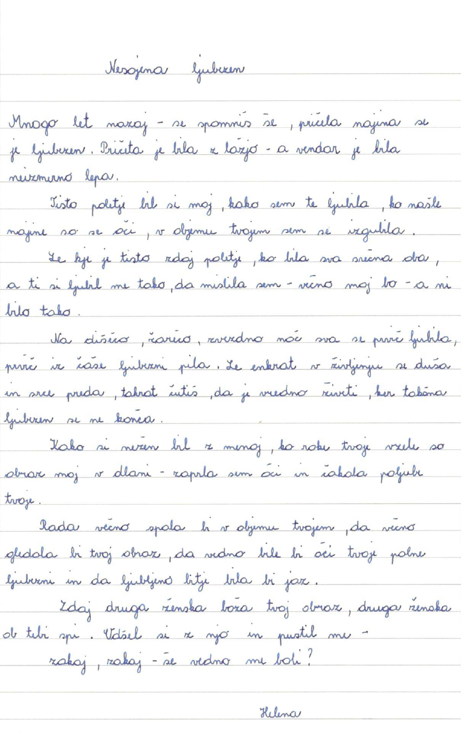 Nesojena ljubezen
Mnogo let nazaj - se spomniš še, pričela najina se
je ljubezen. Pričeta je bila z lažjo - a vendar je bila
neizmerno lepa.
Tisto poletje bil si moj, kako sem te ljubila, ko našle
najine so se oči, v objemu tvojem sem se izgubila.
Le kje je tisto zdaj poletje, ko bila sva srečna oba,
a ti si ljubil me tako, da mislila sem - večno moj bo - a ni
bilo tako.
Na dišečo, žarečo, zvezdno noč sva se prvič ljubila,
prvič iz čaše ljubezni pila. Le enkrat v življenju se duša
in srce preda, takrat čutiš, da je vredno živeti, ker takšna
ljubezen se ne konča.
Kako si nežen bil z menoj, ko roke tvoje vzele so
obraz moj v dlani - zaprla sem oči in čakala poljube
tvoje.
Rada večno spala bi v objemu tvojem, da večno
gledala bi tvoj obraz, da vedno bile bi oči tvoje polne
ljubezni in da ljubljeno bitje bila bi jaz.
Zdaj druga ženska boža tvoj obraz, druga ženska
ob tebi spi. Odšel si z njo in pustil me -
zakaj, zakaj - še vedno me boli?
Helena